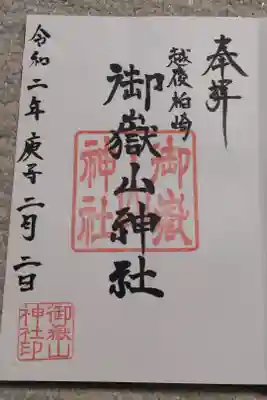 奉拝
越後柏崎
御嶽山神社
御嶽
山
神社
令和二年庚子二月二日
御嶽山
神社印